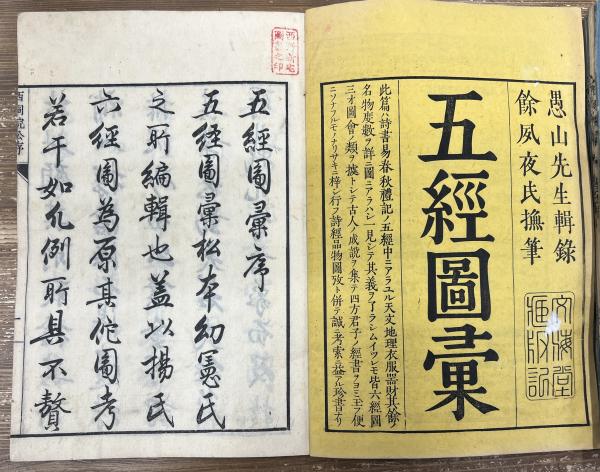 愚山先生輯錄
餘夙夜氏撫筆
五經圖彙
此篇ハ詩書易春秋禮記ノ五經中ニアラユル天文地理衣服器財其餘ノ
名物度數ヲ詳ニ圖ニアラハシ一見シテ其義ヲ了ラシムイツレモ皆六經圖
三才圖會ノ類ヲ據トシテ古人ノ成說ヲ集テ四方君子ノ經書ヲヨミ玉フ便
ニソナフルモノナリサキニ梓シ行フ詩經品物圖攷ト併テ誠ニ考索ニ益アル珍書ナリ
五經圖彙序
五經圖彙松本幼憲氏
之所編輯也蓋以楊氏
六經圖為原其佗圖考
若干如凡例所具不贅